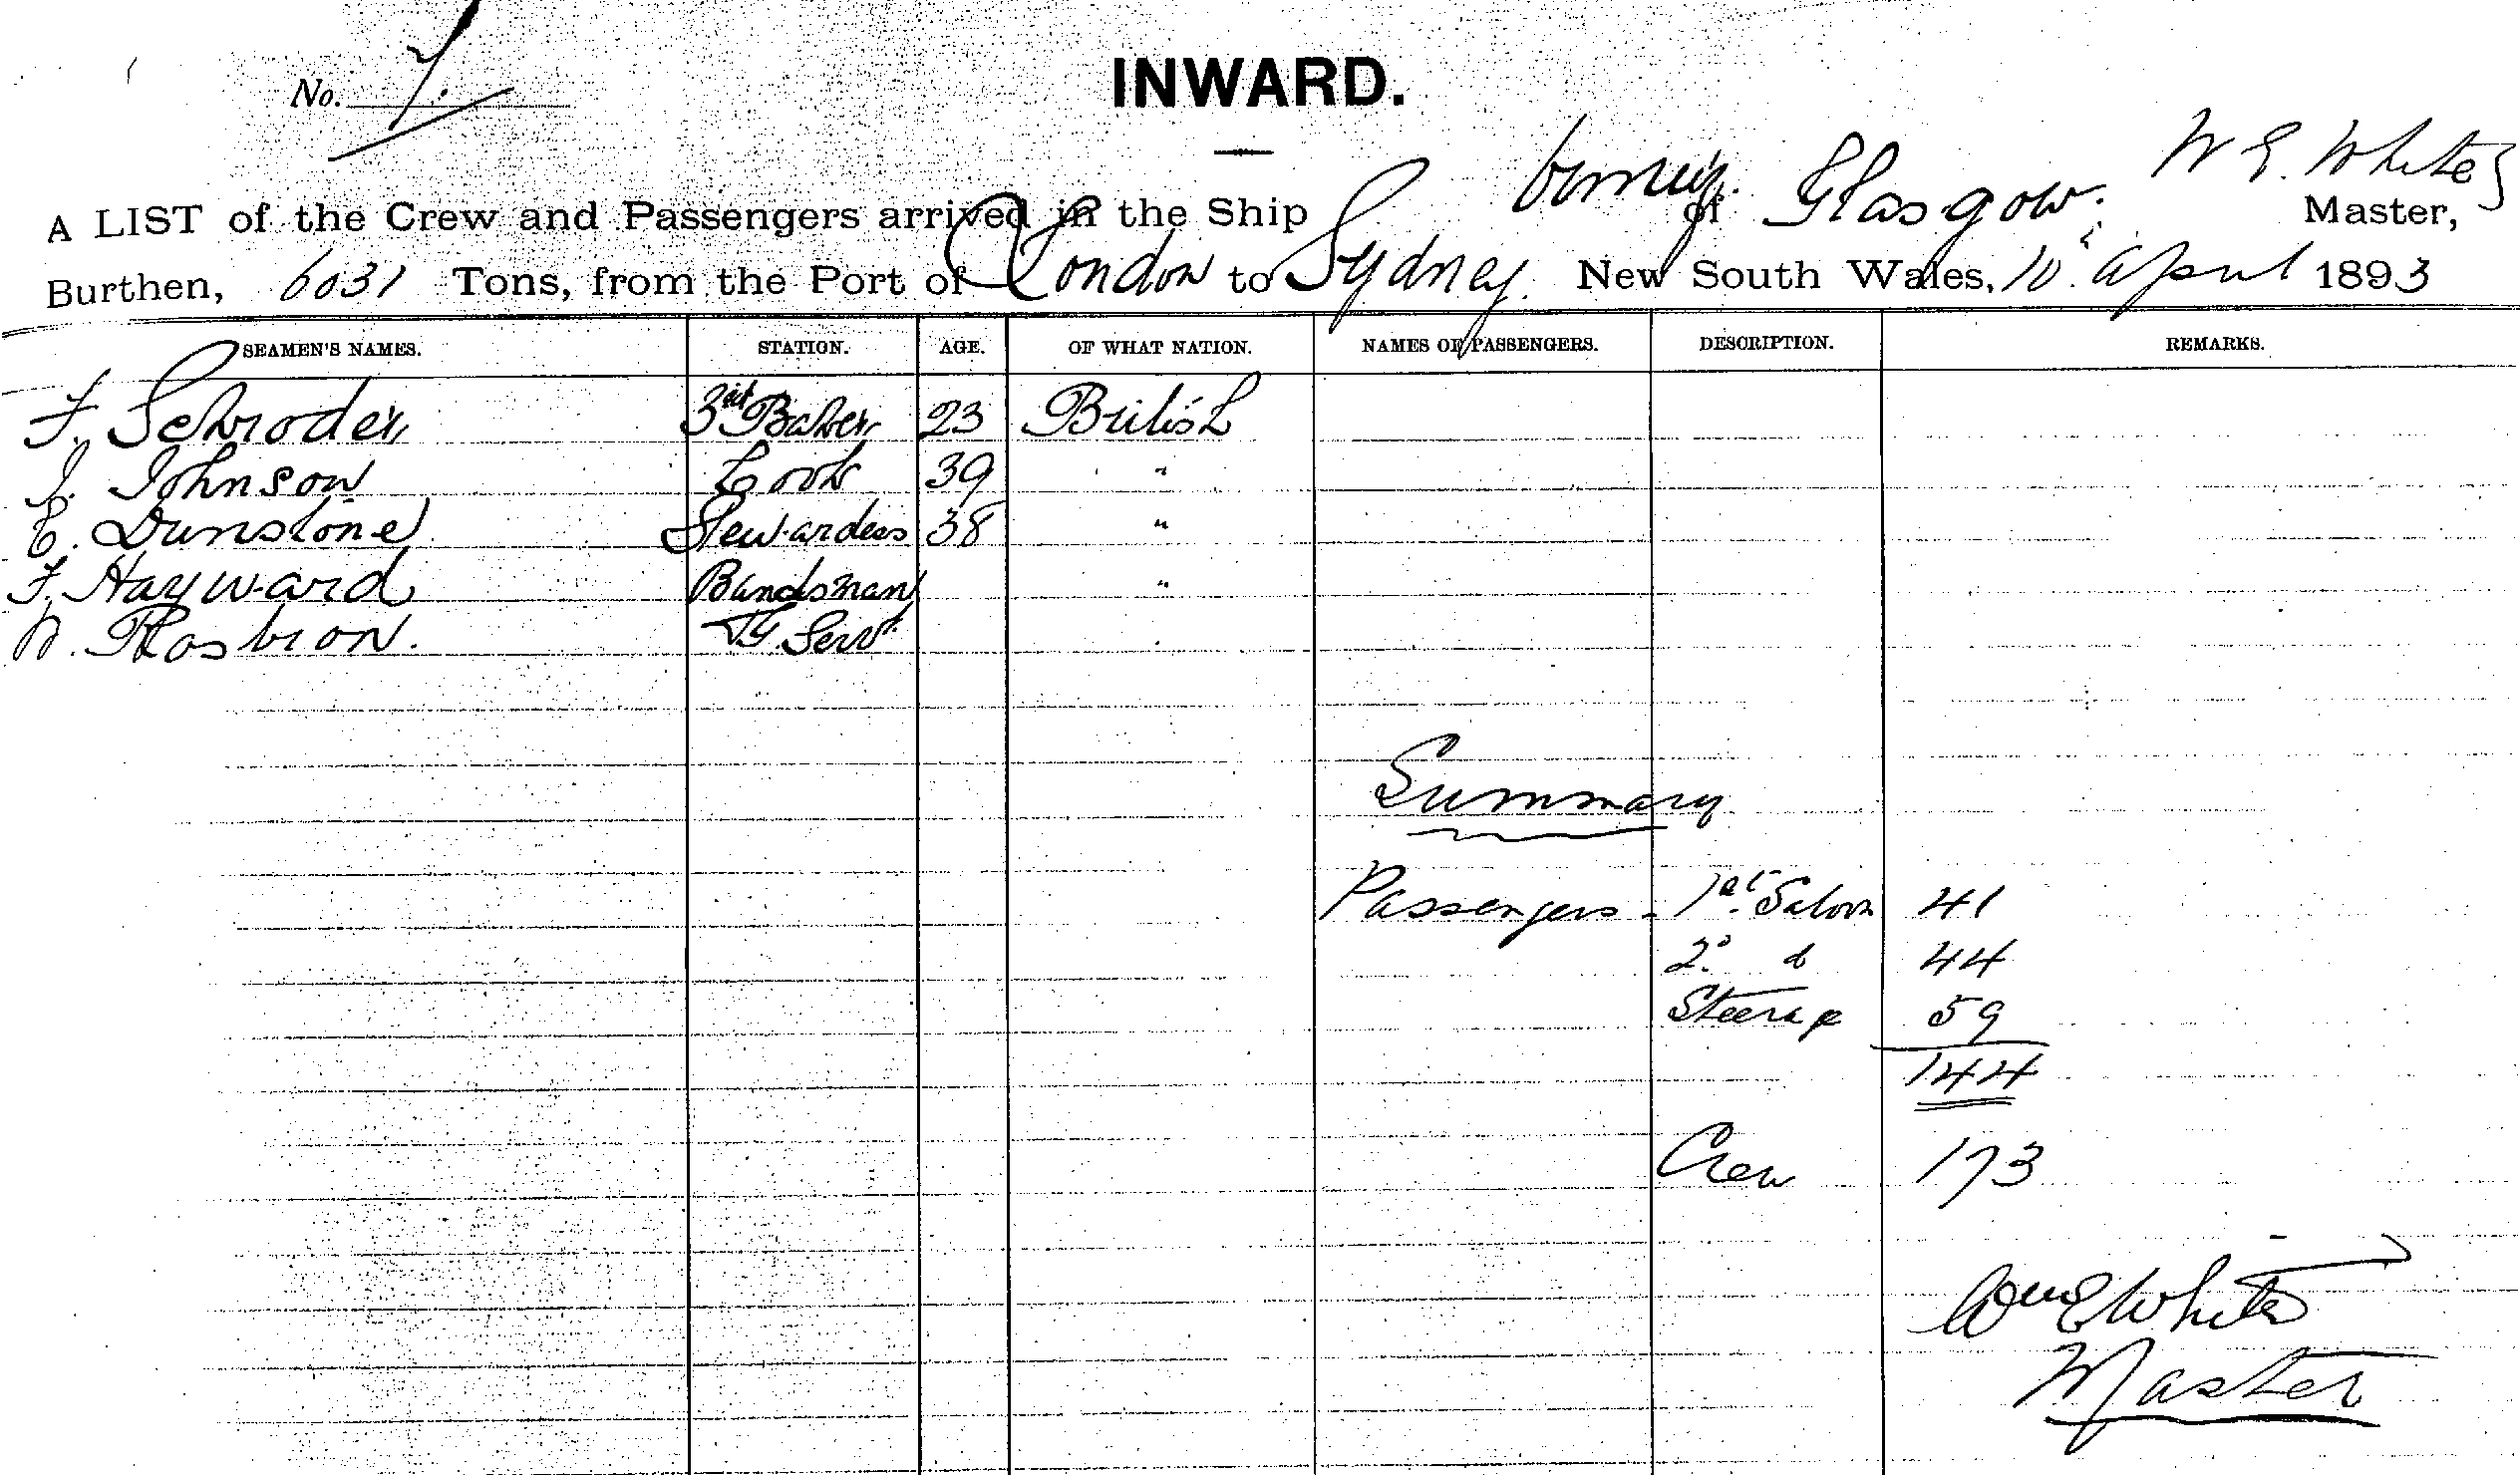 No. 7.
INWARD.
A LIST of the Crew and Passengers arrived in the Ship of Glasgow. W E. White Master,
Burthen, 6031 Tons, from the Port of London to Sydney. New South Wales, 10 April 1893
SEAMEN'S NAMES. STATION. AGE. OF WHAT NATION. NAMES OF PASSENGERS. DESCRIPTION. REMARKS.
F. Schroder 3rd Baker 23 British
J. Johnson Cook 39 "
E. Dunstone Stewardess 38 "
F. Hayward Bandsman "
W. Serv't
Summary
Passengers - 1st Saloon 41
2d do 44
Steerage 59
144
Crew 173
Wm E White
Master